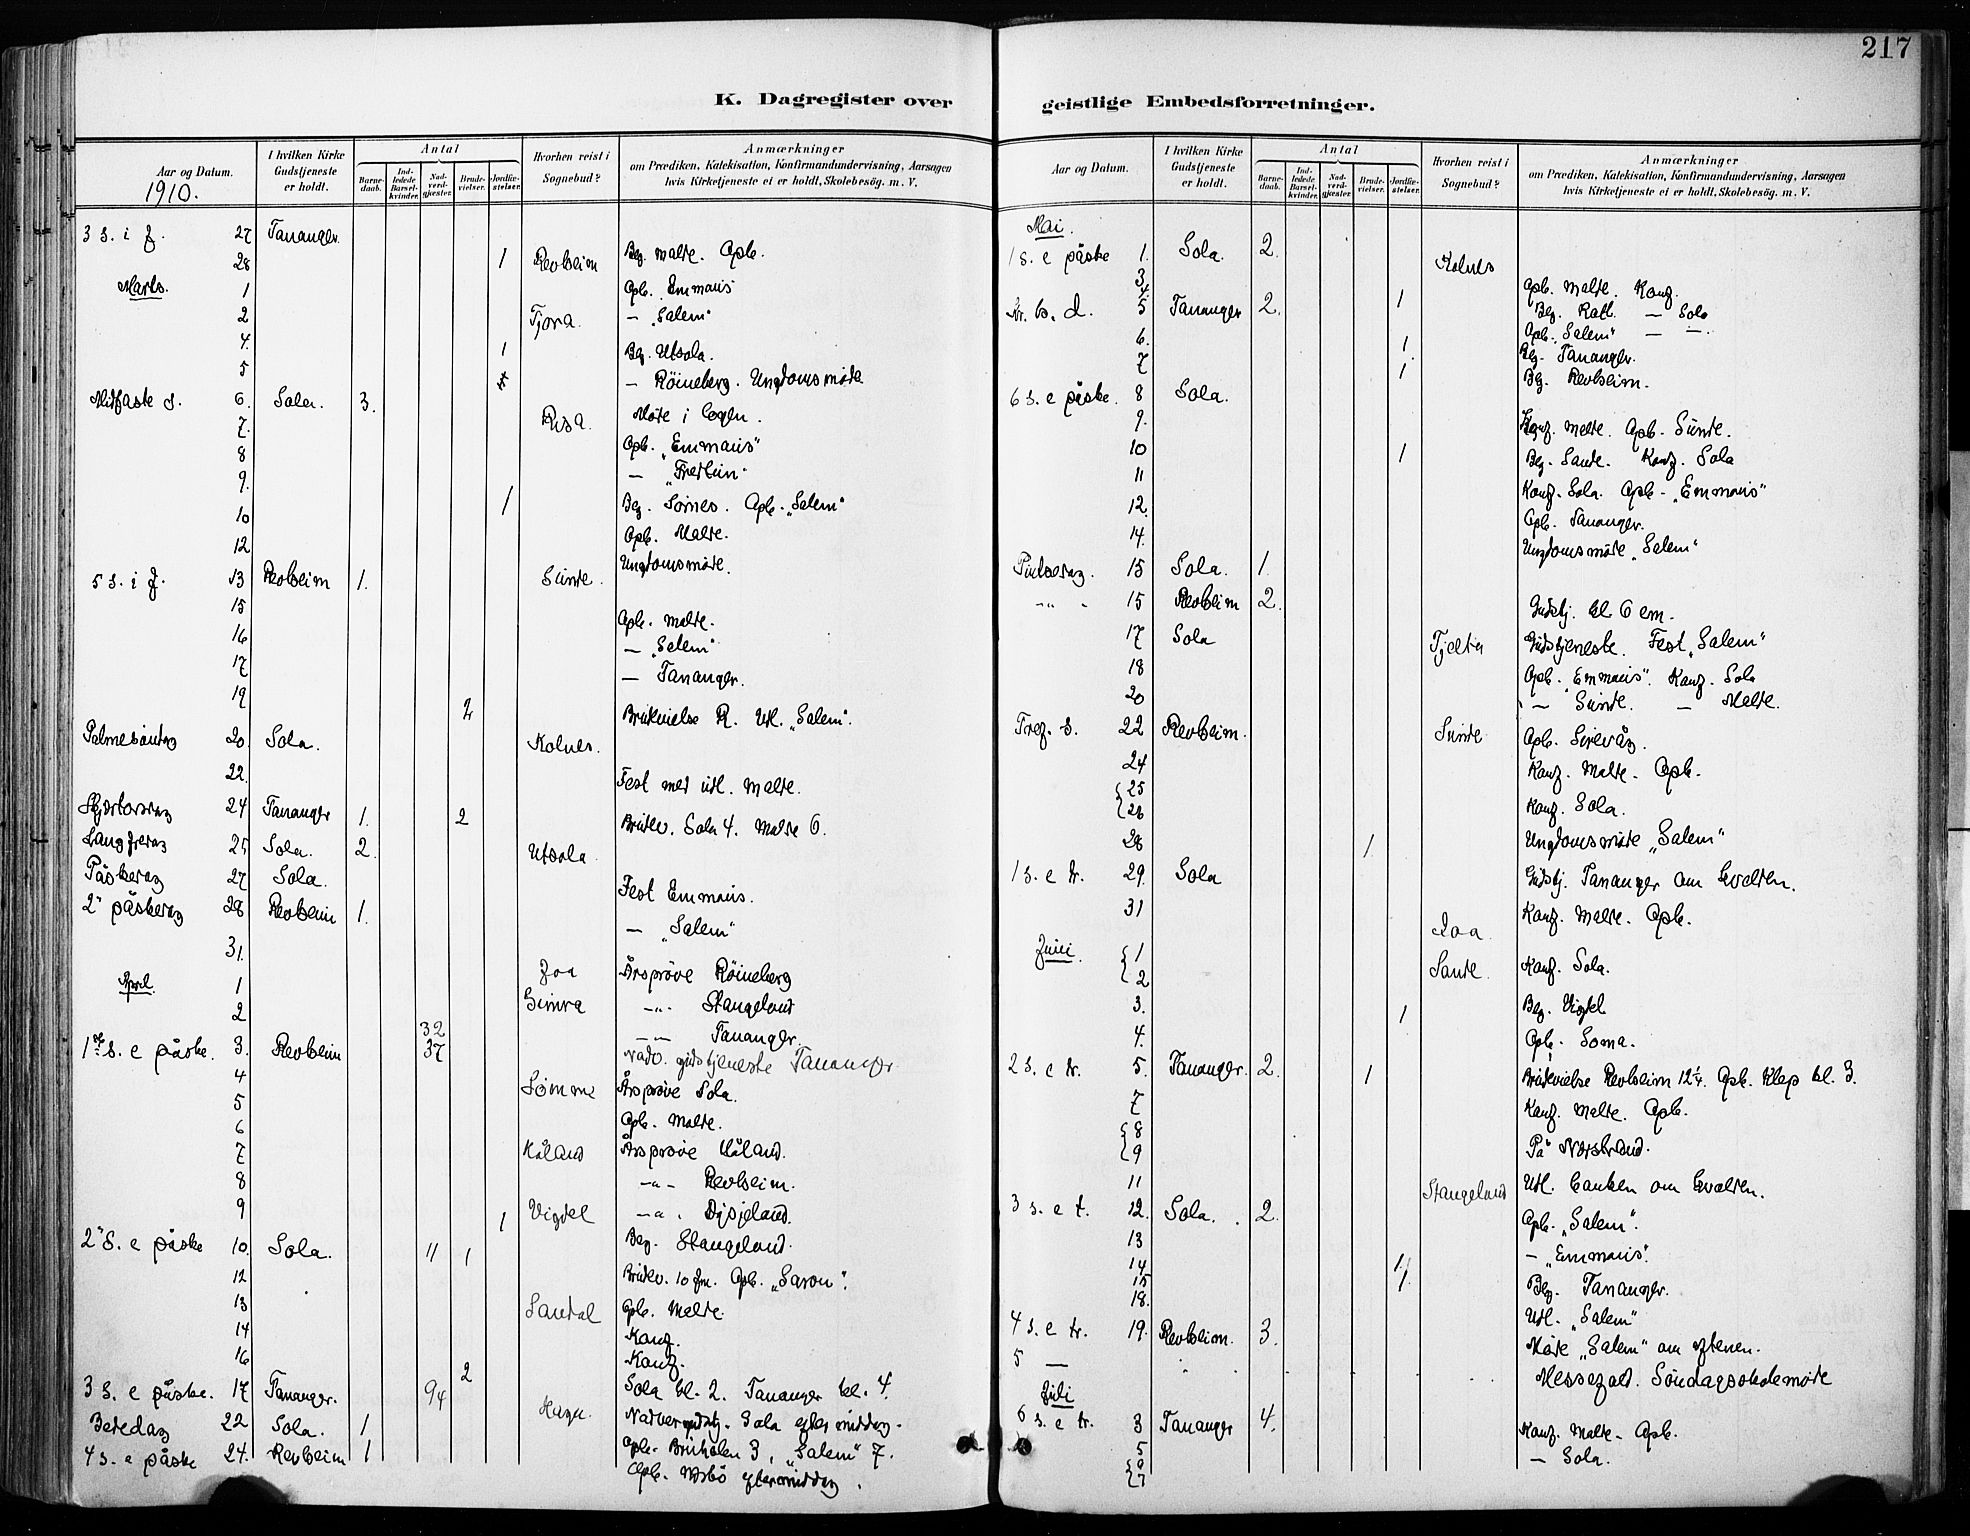 217
K. Dagregister over geistlige Embedsforretninger.
Aar og Datum.
1910.
I hvilken Kirke Gudstjeneste er holdt.
Antal
Barne-daab.
Ind-ledede Barsel-kvinder.
Nad-verd-gjester.
Brude-vielser.
Jordfæ-stelser.
Hvorhen reist i Sognebud?
Anmærkninger
om Prædiken, Katekisation, Konfirmandundervisning, Aarsagen
hvis Kirketjeneste ei er holdt, Skolebesög. m. V.
3 s. i f. 27 Tananger
28 1 Revheim Beg. Malde. Opb.
Marts. 1 Opb. Emmaus
2 Tjora. — "Salem"
4. 1 Beg. Utsola.
5 — Röineberg. Ungdomsmöde
Midfaste s. 6. Sola. 3.
7. Risa. Möde i logen.
8 Opb. "Emmaus"
9. — "Fredheim"
10 1 Beg. Sørnes. Opb. "Salem"
12 Opb. Malde.
Ungdomsmöde.
5 s. i f. 13 Revheim 1. Sunde.
15 Opb. Malde.
16 — "Salem"
17 — Tananger.
19 2 Brudevielse R. Utl. "Salem".
Palmesöndag 20. Sola. Kolnes.
22. Fest med utl. Malde.
Skjærtorsdag 24 Tananger 1. 2 Brudev. Sola 4. Malde 6.
Langfredag 25 Sola. 2. Utsola
Påskedag 27 Sola.
Fest Emmaus.
2 påskedag 28 Revheim 1.
— "Salem"
31. Joa Årsprøve Röineberg
April. 1 Gimra —"— Stangeland
2 32 —"— Tananger.
1ste s. e påske. 3. Revheim 37 Nadv. gudstjeneste Tananger
4 Sømme Årsprøve Sola.
5
6 Opb. Malde.
7 Håland Årsprøve Håland.
8 —"— Revheim.
9 1 Vigdel —"— Dysjeland.
2 s. e påske 10. Sola. 11 1 Beg. Stangeland.
12 Brudev. 10 fm. Opb. "Saron".
13 Sandal Opb. Malde.
14 Konf.
16 2 Konf.
3 s. e påske. 17 Tananger. 94 Sola kl. 2. Tananger kl. 4.
Bededag 22 Sola. 1 Nadvergudstj. Sola eftermiddag.
4 s. e påske 24. Revheim 1 Opb. 3, "Salem" 7.
Opb. eftermiddag.
Aar og Datum.
I hvilken Kirke Gudstjeneste er holdt.
Antal
Barne-daab.
Ind-ledede Barsel-kvinder.
Nad-verd-gjester.
Brude-vielser.
Jordfæ-stelser.
Hvorhen reist i Sognebud?
Anmærkninger
om Prædiken, Katekisation, Konfirmandundervisning, Aarsagen
hvis Kirketjeneste ei er holdt, Skolebesög. m. V.
Mai.
1 s. e påske 1. Sola. 2. Kolnes
3 Opb. Malde. Konf.
4. 1 Beg. — Sola
Kr. h. d. 5 Tananger 2. Opb. "Salem" — —
6. 1. Beg. Tananger.
7 1 Beg. Revheim.
6 s. e påske. 8 Sola.
9. Konf. Malde. Opb. Sunde.
10 1 Beg. Sande. Konf. Sola
11 Konf. Sola. Opb. "Emmaus"
12. Opb. Tananger.
14. Ungdomsmöde "Salem"
Pinsedag. 15 Sola. 1.
—"— 15 Revheim 2. Gudstj. kl 6 em.
17 Sola Tjelta Gudstjeneste. Fest "Salem"
18 Opb. "Emmaus". Konf. Sola
20 — Sunde. — Malde.
Tref. s. 22 Revheim. Sunde Opb. Sirevåg.
24 Konf. Malde. Opb.
25
26 Konf. Sola.
28 1. Ungdomsmöde "Salem"
1 s. e tr. 29. Sola Gudstj. Tananger om kvelden.
31 Joa Konf. Malde. Opb.
Juni. 1
2 Sande. Konf. Sola.
3. 1 Beg. Vigdel
4. Opb. Soma.
2 s. e tr. 5. Tananger. 2. 1 Brudevielse Revheim 12¼. Opb. Klep kl. 3.
7 Konf. Malde. Opb.
8
9 På Nærstrand.
11 Stangeland Utl. banken om kvelden.
3 s. e t. 12. Sola. 2. Opb. "Salem".
13 — "Emmaus".
14 1.
15 1. Beg. Tananger.
18. Utl. "Salem"
4 s. e tr. 19. Revheim. 3. Möde "Salem" om aftenen.
5 — Messefald. Söndagsskolemöde
Juli
6 s. e tr. 3 Tananger 4.
5 Konf. Malde. Opb.
6
7 — Sola.